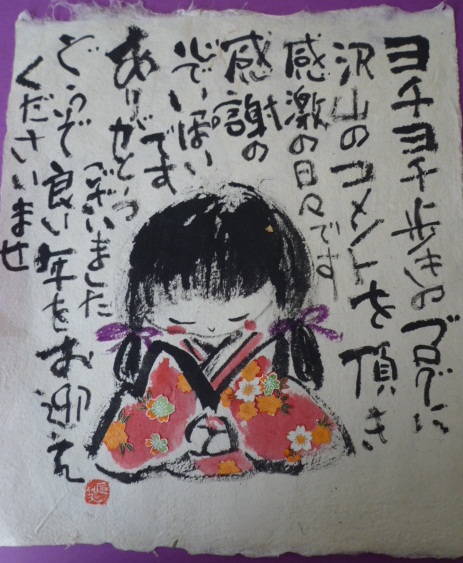 ヨチヨチ歩きのブログに
沢山のコメントを頂き
感激の日々です
感謝の
心でいっぱい
です
ありがとう
ございました
どうぞ良い年をお迎え
くださいませ